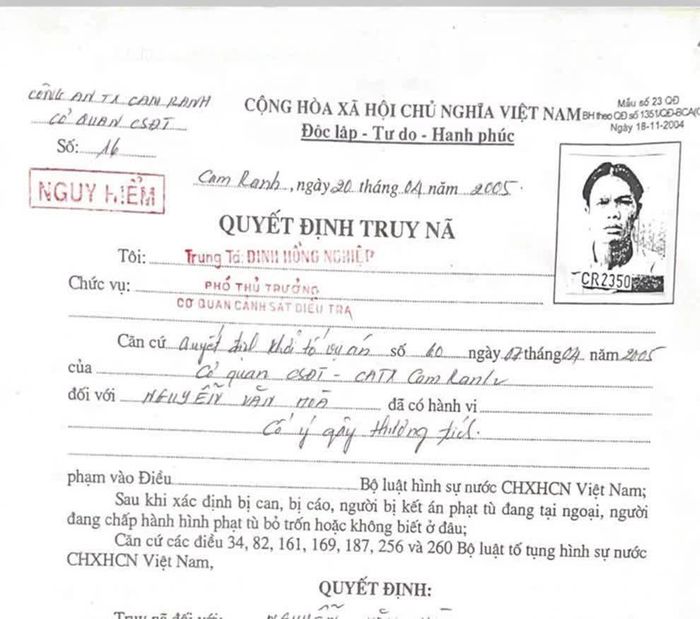 CÔNG AN TX CAM RANH
CƠ QUAN CSĐT
Số: 16
CỘNG HÒA XÃ HỘI CHỦ NGHĨA VIỆT NAM
Độc lập - Tự do - Hạnh phúc
Mẫu số 23 QĐ
BH theo QĐ số 1351/QĐ-BCA(C
Ngày 18-11-2004
NGUY HIỂM
Cam Ranh, ngày 20 tháng 04 năm 2005.
QUYẾT ĐỊNH TRUY NÃ
Tôi: Trung Tá: ĐINH HỒNG NGHIỆP
Chức vụ: PHÓ THỦ TRƯỞNG
CƠ QUAN CẢNH SÁT ĐIỀU TRA
CR2350
Căn cứ quyết định khởi tố vụ án số 60 ngày 07 tháng 04 năm 2005
của Cơ quan CSĐT - CATX Cam Ranh
đối với NGUYỄN VĂN HOÀ đã có hành vi
Cố ý gây thương tích.
phạm vào Điều Bộ luật hình sự nước CHXHCN Việt Nam;
Sau khi xác định bị can, bị cáo, người bị kết án phạt tù đang tại ngoại, người
đang chấp hành hình phạt tù bỏ trốn hoặc không biết ở đâu;
Căn cứ các điều 34, 82, 161, 169, 187, 256 và 260 Bộ luật tố tụng hình sự nước
CHXHCN Việt Nam,
QUYẾT ĐỊNH:
Truy nã đối với: NGUYỄN VĂN